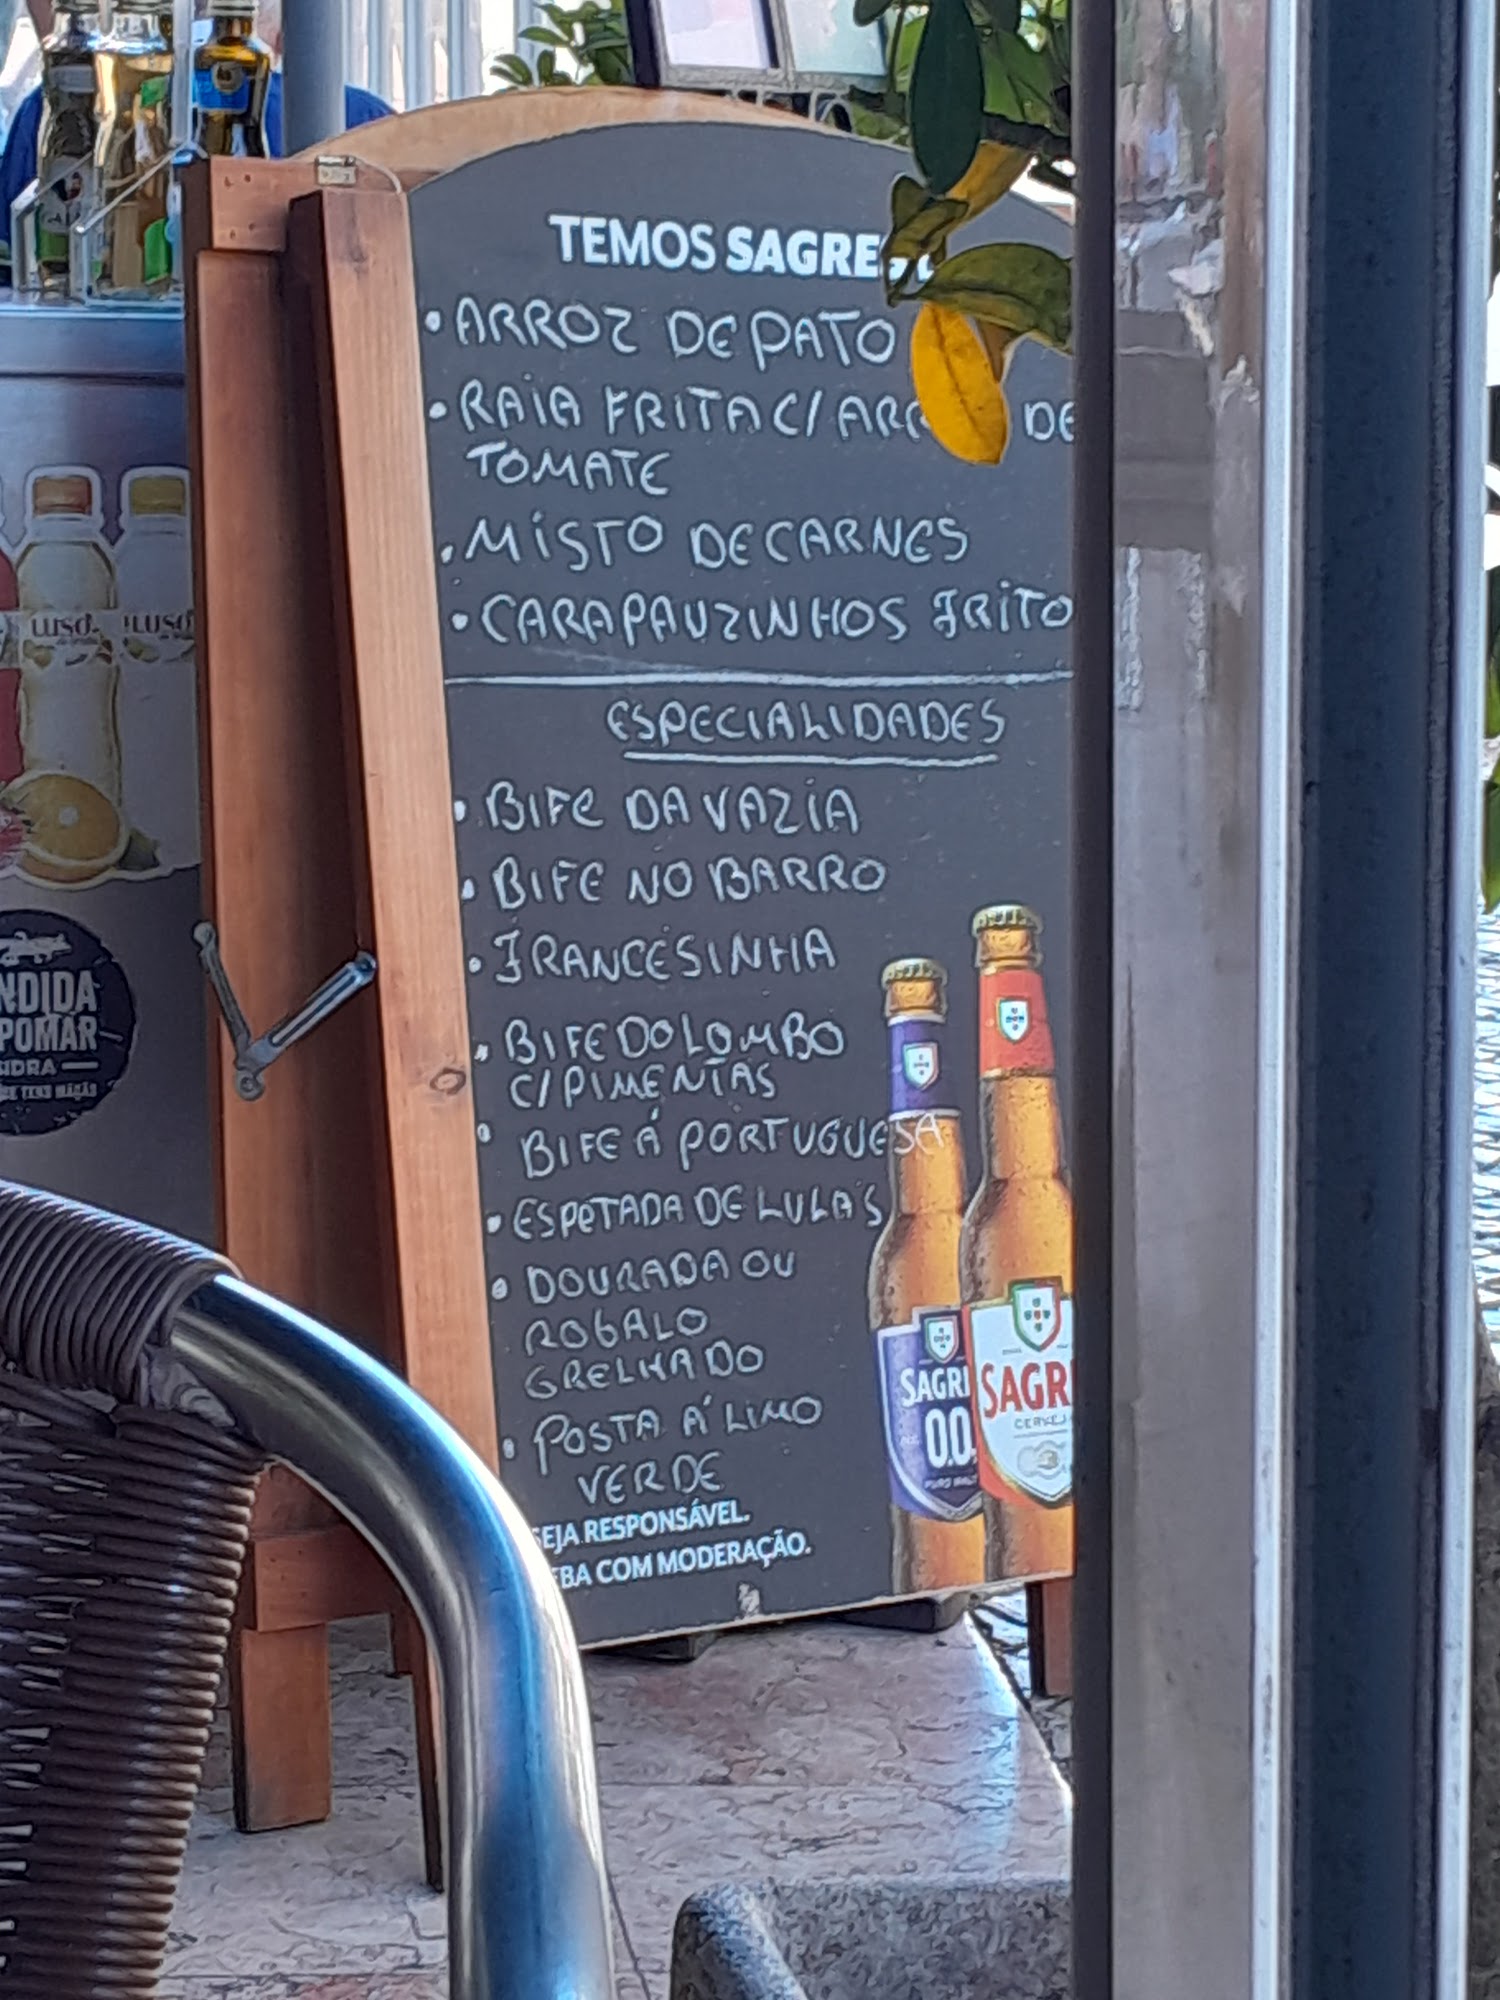 TEMOS SAGRES
• ARROZ DE PATO
• RAIA FRITA C/ DE
TOMATE
• MISTO DE CARNES
• CARAPAUZINHOS FRITO
ESPECIALIDADES
• BIFE DA VAZIA
• BIFE NO BARRO
• FRANCESINHA
• BIFE DO LOMBO
C/ PIMENTAS
• BIFE Á PORTUGUESA
• ESPETADA DE LULAS
• DOURADA OU
ROBALO
GRELHADO
• POSTA Á LIMO
VERDE
SEJA RESPONSÁVEL.
COM MODERAÇÃO.
SAGR
0.0
SAGR
LUSO
LUSO
NDIDA
POMAR
SIDRA